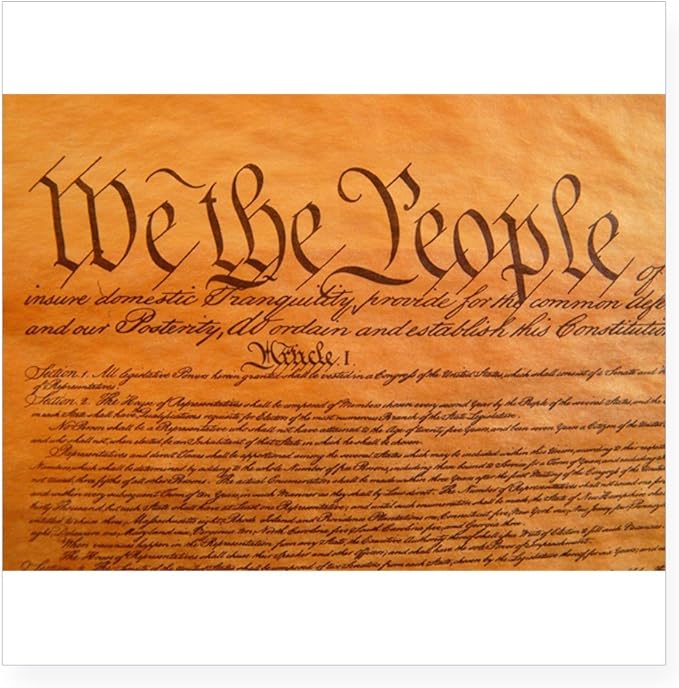 We the People of
insure domestic Tranquility, provide for the common defe
and our Posterity, do ordain and establish this Constitution
Article I.
Section. 1. All legislative Powers herein granted shall be vested in a Congress of the United States, which shall consist of a Senate and
of Representatives.
Section. 2. The House of Representatives shall be composed of Members chosen every second Year by the People of the several States, and the
in each State shall have the Qualifications requisite for Electors of the most numerous Branch of the State Legislature.
No Person shall be a Representative who shall not have attained to the Age of twenty five Years, and been seven Years a Citizen of the United
and who shall not, when elected, be an Inhabitant of that State in which he shall be chosen.
Representatives and direct Taxes shall be apportioned among the several States which may be included within this Union, according to their respective
Numbers, which shall be determined by adding to the whole Number of free Persons, including those bound to Service for a Term of Years, and excluding
not taxed, three fifths of all other Persons. The actual Enumeration shall be made within three Years after the first Meeting of the Congress of the United
and within every subsequent Term of ten Years, in such Manner as they shall by Law direct. The Number of Representatives shall not exceed one for
thirty Thousand, but each State shall have at Least one Representative; and until such enumeration shall be made, the State of New Hampshire shall
entitled to chuse three, Massachusetts eight, Rhode Island and Providence Plantations one, Connecticut five, New York six, New Jersey four, Pennsyl
eight, Delaware one, Maryland six, Virginia ten, North Carolina five, South Carolina five, and Georgia three.
When vacancies happen in the Representation from any State, the Executive Authority thereof shall issue Writs of Election to fill such Vacancies.
The House of Representatives shall chuse their Speaker and other Officers; and shall have the sole Power of Impeachment.
The Senate of the United States shall be composed of two Senators from each State, chosen by the Legislature thereof, for six Years; and